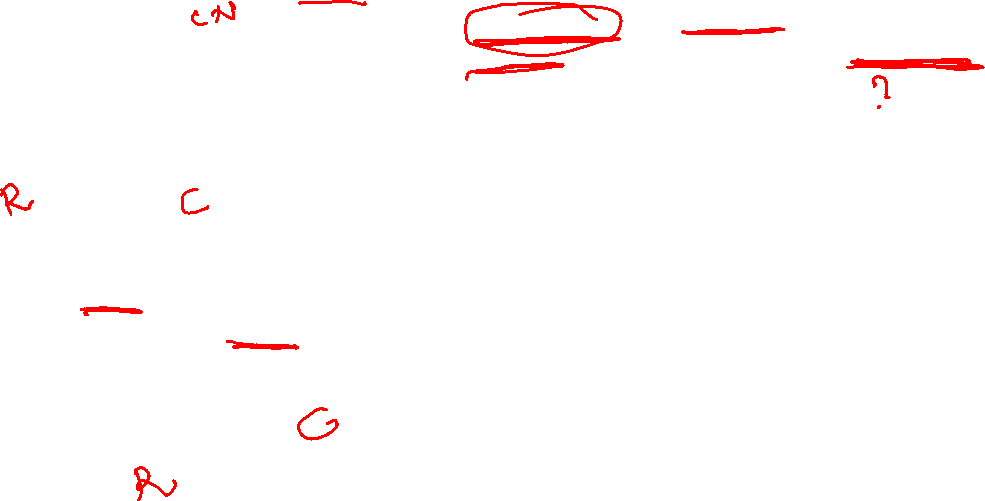 CN
?
R C
G
R